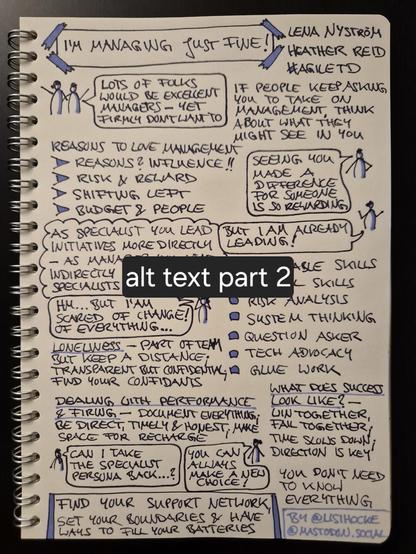 I'M MANAGING JUST FINE!
LENA NYSTRÖM
HEATHER REID
#AGILETD
LOTS OF FOLKS
WOULD BE EXCELLENT
MANAGERS – YET
FIRMLY DON'T WANT TO
IF PEOPLE KEEP ASKING
YOU TO TAKE ON
MANAGEMENT, THINK
ABOUT WHAT THEY
MIGHT SEE IN YOU
REASONS TO LOVE MANAGEMENT
REASONS? INFLUENCE!!
RISK & REWARD
SHIFTING LEFT
BUDGET & PEOPLE
SEEING YOU
MADE A
DIFFERENCE
FOR SOMEONE
IS SO REWARDING
AS SPECIALIST YOU LEAD
INITIATIVES MORE DIRECTLY
– AS
INDIRECTLY
SPECIALISTS
BUT I AM ALREADY
LEADING!
alt text part 2
SKILLS
SKILLS
RISK ANALYSIS
SYSTEM THINKING
QUESTION ASKER
TECH ADVOCACY
GLUE WORK
HM... BUT I'AM
SCARED OF CHANGE!
OF EVERYTHING...
LONELINESS – PART OF TEAM
BUT KEEP A DISTANCE;
TRANSPARENT BUT CONFIDENTIAL,
FIND YOUR CONFIDANTS
DEALING WITH PERFORMANCE
& FIRING – DOCUMENT EVERYTHING,
BE DIRECT, TIMELY & HONEST, MAKE
SPACE FOR RECHARGE
WHAT DOES SUCCESS
LOOK LIKE? –
WIN TOGETHER,
FAIL TOGETHER;
TIME SLOWS DOWN;
DIRECTION IS KEY
CAN I TAKE
THE SPECIALIST
PERSONA BACK...?
YOU CAN
ALWAYS
MAKE A NEW
CHOICE!
YOU DON'T NEED
TO KNOW
EVERYTHING
FIND YOUR SUPPORT NETWORK,
SET YOUR BOUNDARIES & HAVE
WAYS TO FILL YOUR BATTERIES
BY @LISIHOCKE
@MASTODON.SOCIAL